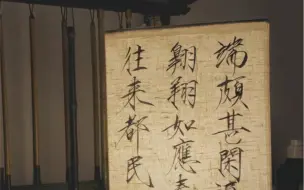 端頗甚閑
翱翔如應
往来都民